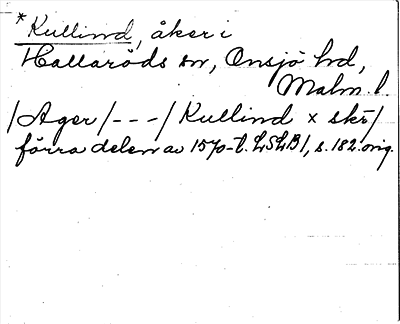 *Kullind, åker i
Hallaröds sn, Onsjö hd,
Malm. l.
/Ager/---/Kullind x skr/
förra delen av 1570-t. LSLB1, s. 182. orig.